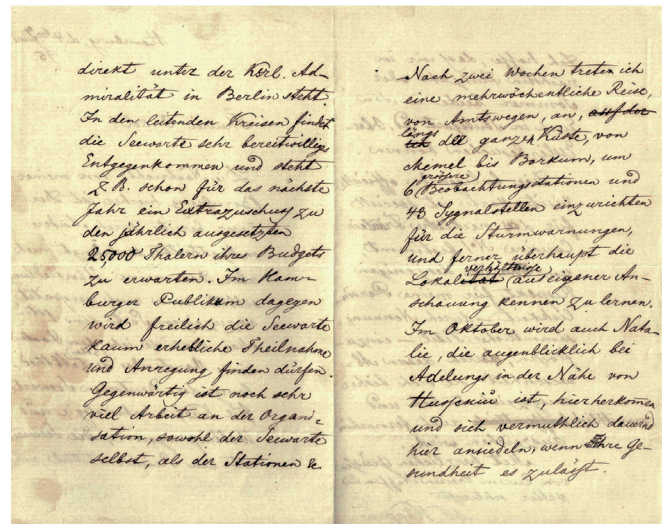 direkt unter der KSrl. Ad-
miralität in Berlin steht.
In den leitenden Kreisen findet
die Seewarte sehr bereitwilliges
Entgegenkommen und steht
z. B. schon für das nächste
Jahr ein Extrazuschuß zu
den jährlich ausgesetzten
25,000 Thalern ihres Budgets
zu erwarten. Im Ham-
burger Publikum dagegen
wird freilich die Seewarte
kaum erhebliche Theilnahme
und Anregung finden dürfen.
Gegenwärtig ist noch sehr
viel Arbeit an der Organi-
sation, sowohl der Seewarte
selbst, als der Stationen &c
Nach zwei Wochen treten ich
eine mehrwöchentliche Reise,
von Amtswegen, an, auf der
längs der ganzen Küste, von
Memel bis Borkum, um
6 größere Beobachtungsstationen und
43 Sygnalstellen einzurichten
für die Sturmwarnungen,
und ferner überhaupt die
Lokalverhältnisse aus eigener An-
schauung kennen zu lernen.
Im Oktober wird auch Nata-
lie, die augenblicklich bei
Adelungs in der Nähe von
ist, hierherkomen
und sich vermuthlich dauernd
hier ansiedeln, wenn Ihre Ge-
sundheit es zuläßt.